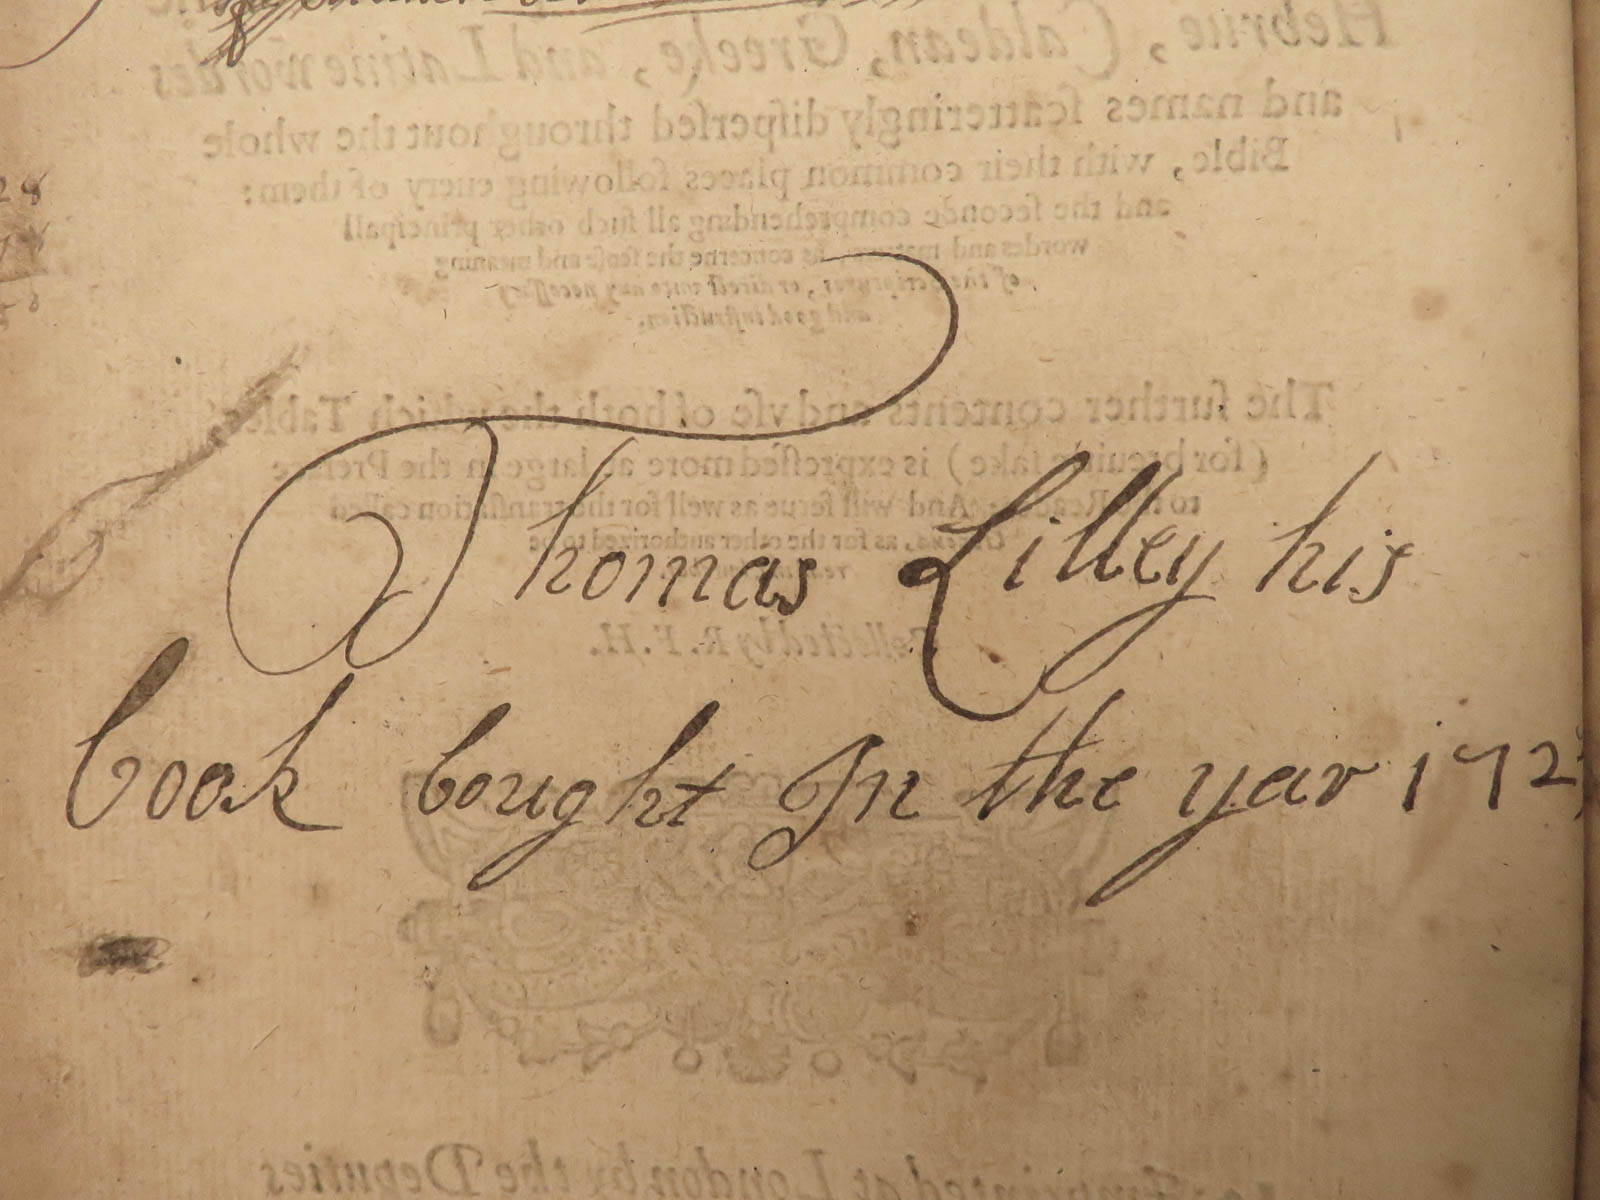 Hebrue, Caldean, Greeke, and Latine wordes
and names ſcatteringly diſperſed throughout the whole
Bible, with their common places following euery of them:
and the ſeconde comprehending all ſuch other principall
wordes and matters, as concerne the ſenſe and meaning
of the Scriptures, or direct vnto any neceſſary
and good inſtruction.
The further contents and vſe of both the which Tables,
(for breuitie ſake) is expreſſed more at large in the Preface
to the Reader: And will ſerue as well for the tranſlation called
Geneua, as for the other authorized to be
Collected by R. F. H.
Thomas Lilley his
book bought In the year 172
Imprinted at London by the Deputies